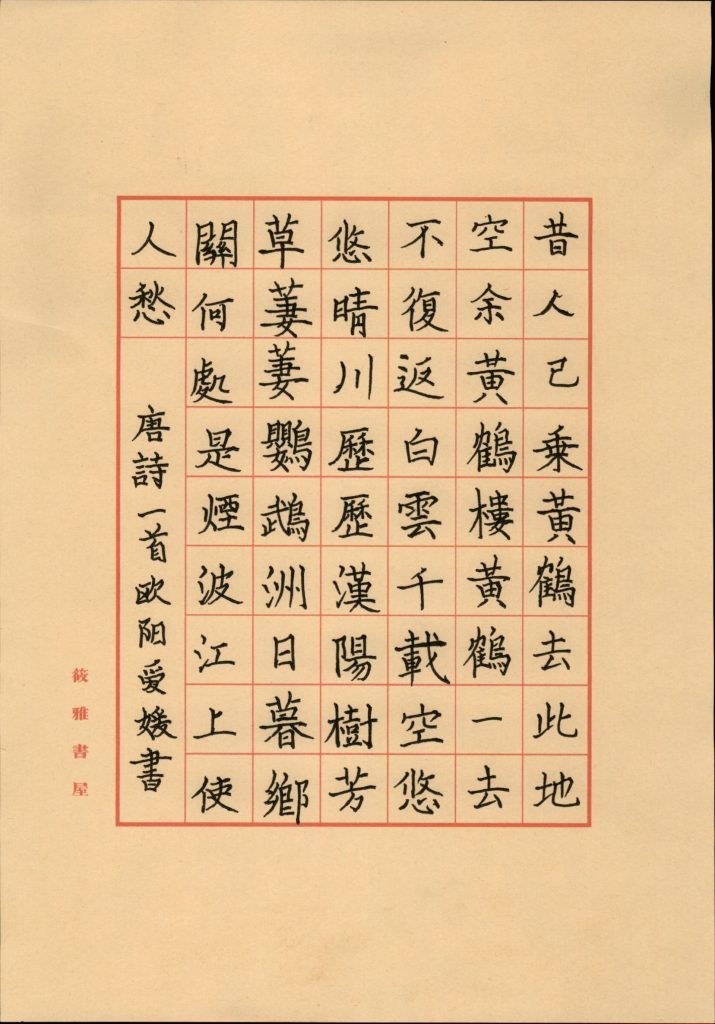 昔人已乗黃鶴去此地
空余黃鶴樓黃鶴一去
不復返白雲千載空悠
悠晴川歷歷漢陽樹芳
草萋萋鸚鵡洲日暮鄉
關何處是煙波江上使
人愁
唐詩一首欧阳爱媛書
筱雅書屋